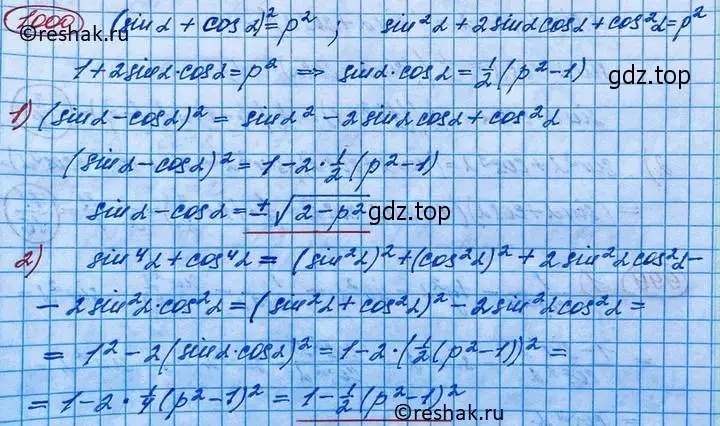 1000 (sinα + cosα)² = p² ; sin²α + 2sinαcosα + cos²α = p²
1 + 2sinα·cosα = p² ⇒ sinα·cosα = 1/2 (p² − 1)
gdz.top
1) (sinα − cosα)² = sinα² − 2sinαcosα + cos²α
(sinα − cosα)² = 1 − 2 · 1/2 (p² − 1)
sinα − cosα = ±√(2 − p²) gdz.top
2) sin⁴α + cos⁴α = (sin²α)² + (cos²α)² + 2sin²αcos²α −
− 2sin²α·cos²α = (sin²α + cos²α)² − 2sin²αcos²α =
= 1² − 2(sinα·cosα)² = 1 − 2·(1/2(p² − 1))² =
= 1 − 2 · 1/4 (p² − 1)² = 1 − 1/2 (p² − 1)²
reshak.ru